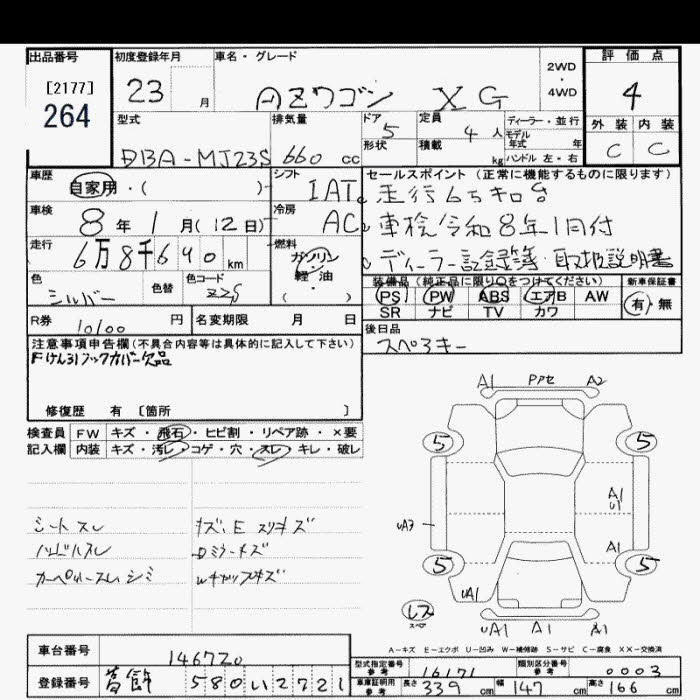 出品番号 初度登録年月 車名・グレード 評価点
[2177] 23 月 AZワゴン XG 2WD・4WD 4
264 型式 排気量 ドア 5 定員 4人 ディーラー・並行 外装 内装
形状 積載 kg モデル年式 年
DBA-MJ23S 660 cc ハンドル 左・右 C C
車歴 シフト セールスポイント (正常に機能するものに限ります)
自家用・( ) IAT 走行6万キロ台
車検 冷房
8年 1月(12日) AC 車検令和8年1月付
走行 燃料
6万8千640km ガソリン ディーラー記録簿・取扱説明書
軽・油
色 色替 色コード ( ) 装備品 (純正品に限り○をつけてください) 新車保証書
シルバー ZZS PS PW ABS エアB AW 有・無
SR ナビ TV カワ
R券 10100円 名変期限 月 日 後日品
注意事項申告欄(不具合内容等は具体的に記入して下さい) スペアキー
Fけん引フックカバー欠品
修復歴 有 [箇所 ]
検査員 FW キズ・飛石・ヒビ割・リペア跡・×要
記入欄 内装 キズ・汚レ・コゲ・穴・スレ・キレ・破レ
A1 Pアセ A2
5 5
A1
U1
UA3
A1
5 5
UA1
レス
スペア
UA1 A1 A1
シートスレ キズ、E スリキズ
ハンドルスレ Dミラーキズ
カーペットスレ シミ Wキャップキズ
A-キズ E-エクボ U-凹み W-補修跡 S-サビ C-腐食 XX-交換済
車台番号 146720 型式指定番号 参考 16171 類別区分番号 参考 0003
登録番号 580 い 2721 車庫証明用 参考 長さ 339cm 幅 147cm 高さ 166cm